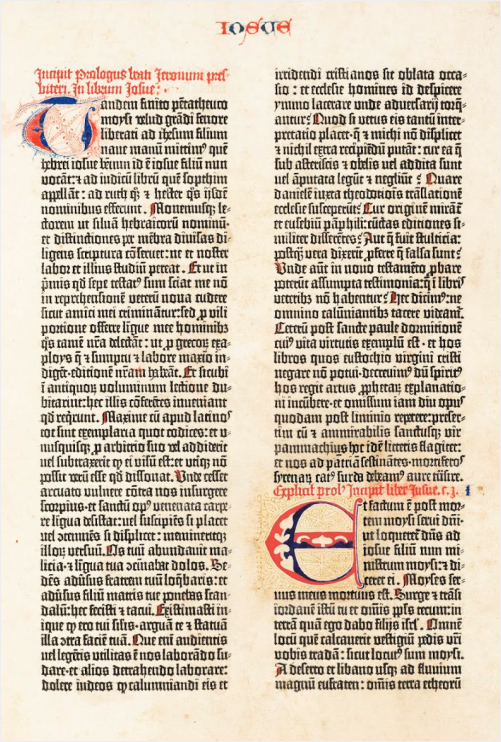 IOSUE
Incipit Prologus beati Jeronimi pres-
biteri. In librum Josue:
Tandem finito pētatheuco
moysi velud grādi fenore
liberati ad ihesum filium
naue manū mittim⁹ quē
hebrei iosue bennū id ē iosue filiū nun
vocāt: ⁊ ad iudicū librū quē sopthim
appellāt: ad ruth q̄ ⁊ hester q̄s ijsdē
nominibus efferunt. Monemusq; le-
ctorem ut siluā hebraicorū nominū
et distinctiones per mēbra diuisas di-
ligens scriptura cōseruet: ne et noster
labor et illius studiū pereat. Et ut in
p̄mis qd̄ sepe testat⁹ sum sciat me nō
in reprehensionē veterū noua cudere
sicut amici mei criminātur: sed ꝓ viri-
portione offerre ligue mee hominibꝫ
q̄s tamē nr̄a delectāt: ut ꝓ grecoꝝ exa-
ploys q̄ ⁊ sumptu ⁊ labore maxio in-
digēt. editionē nr̄am habāt. Et sicubi
ī antiquoꝝ voluminum lectione du-
bitarint: hec illis cōferētes inueniant
qd̄ reqrunt. Maxime cū apud latinos
tot sint exemplaria quot codices: et v-
nusquisq; ꝓ arbitrio suo vel addiderit
vel subtraxerit qd̄ ei visū est: et utiq; nō
possit verū esse qd̄ dissonat. Unde cesset
arcuato vulnere cōtra nos insurgere
scorpius. et sanctū op⁹ venenata carpe-
re ligua desistat: vel suscipiēs si placet
vel ꝯtemnēs si displicet: memineritq;
illoꝝ versuū. Os tuū abundauit ma-
licia. ⁊ ligua tua ꝯcinabat dolos. Se-
dēs adūsus fratrem tuū loq̄baris: et
adūsus filiū matris tue ponebas scan-
dalū: hec fecisti ⁊ tacui. Existimasti in-
ique qd̄ ero tui silis. arguā te ⁊ statuā
illa ꝯtra faciē tuā. Que eni audientis
vel legētis utilitas ē nos laborādo su-
dare. et alios detrahendo laborare:
dolere iudeos qd̄ calumniandi eis et
irridendi cristianos sit oblata occa-
sio: et ecclesie homines id despicere
ymmo lacerare vnde aduersarij torq̄-
antur? Quod si vetus eis tantū inter-
pretatio placet. q̄ ⁊ michi nō displicet
⁊ nichil extra recipiēdū putāt: cur ea q̄
sub asteriscis ⁊ obelis vel addita sunt
vel āputata legūt ⁊ negliūt? Quare
danielē iuxta theodotiōis trāslationē
ecclesie susceperūt? Cur originē mirāt̄
et eusebiū pāphili: cūctas editiones si-
militer disserētes? Aut q̄ fuit stulticia:
postq; vera dixerit. ꝓferre q̄ falsa sunt?
Unde aūt in nouo testamēto ꝓbare
poterūt assumpta testimonia: q̄ ī libris
veteribꝫ nō habentur? Hec dicim⁹: ne
omnino calūniantibꝫ tacere videam̄.
Ceterū post sancte paule dormitionē
cui⁹ vita virtutis exemplū est. et hos
libros quos eustochio virgini cristi
negare nō potui. decreuim⁹ dū spirit⁹
hos regit artus ꝓphetaꝝ explanatio-
ni incūbere. et omissum iam diu opus
quodam post liminio repetere: preser-
tim cū ⁊ ammirabilis sanctusq; vir
pammachius hoc idē litteris flagitet:
et nos ad patriā festinātes. mortiferos
syrenaꝝ cat⁹ surda debeam⁹ aure trāsire.
Explicit prol⁹ Incipit liber Josue. c. j. 1
Et factum ē post mor-
tem moysi serui dn̄i:
ut loqueret̄ dn̄s ad
iosue filiū nun mi-
nistrum moysi: ⁊ di-
ceret ei. Moyses ser-
nus meus mortuus est. Surge ⁊ trāsi
iordanē istū tu et omīs ppls tecum: in
terrā quā ego dabo filijs isrl̄. Omnē
locū quē calcauerit vestigiū pedis vr̄i
vobis tradā: sicut locut⁹ sum moysi.
A deserto et libano usq; ad fluuium
magnū eufraten: omīs terra etheorū